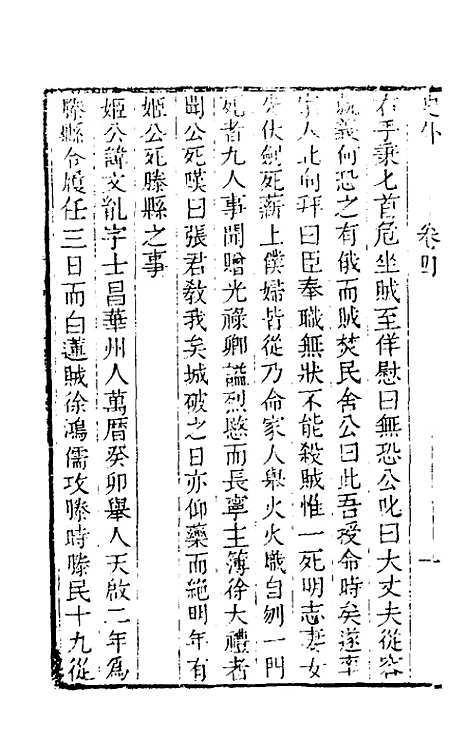 史外　卷四　一
右手秉匕首危坐賊至佯慰曰無恐公叱曰大丈夫從容
就義何恐之有俄而賊焚民舍公曰此吾授命時矣遂率
家人北向拜曰臣奉職無狀不能殺賊惟一死明志妻女
伏劍死薪上僕婦皆從乃命家人舉火火熾自刎一門
死者九人事聞贈光祿卿謚烈愍而長寧主簿徐大禮者
聞公死嘆曰張君敎我矣城破之日亦仰藥而絕明年有
姬公死滕縣之事
姬公諱文胤字士昌華州人萬曆癸卯舉人天啟二年為
滕縣令履任三日而白蓮賊徐鴻儒攻滕時滕民十九從